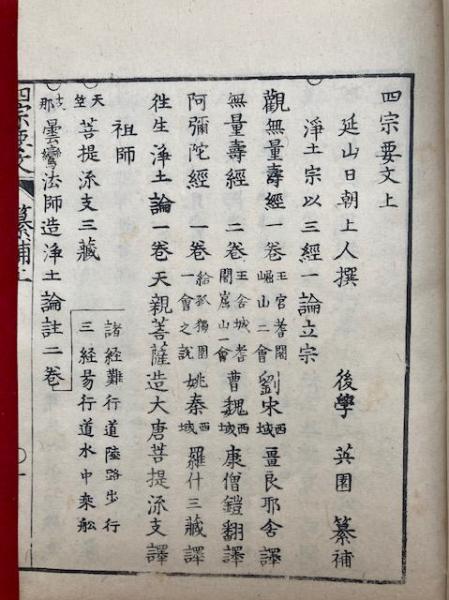 四宗要文上
延山日朝上人撰 後學 英園 纂補
淨土宗以三經一論立宗
觀無量壽經一卷 王宮耆闍崛山二會 劉宋西域畺良耶舍譯
無量壽經 二卷 王舍城耆闍崫山一會 曹魏西域康僧鎧翻譯
阿彌陀經 一卷 給孤獨園一會之說 姚秦西域羅什三藏譯
往生淨土論一卷天親菩薩造大唐菩提流支譯
祖師
天竺 菩提流支三藏
諸經難行道陸路步行
三經易行道水中乘舩
支那 曇鸞法師造淨土論註二卷
四宗要文 纂補上